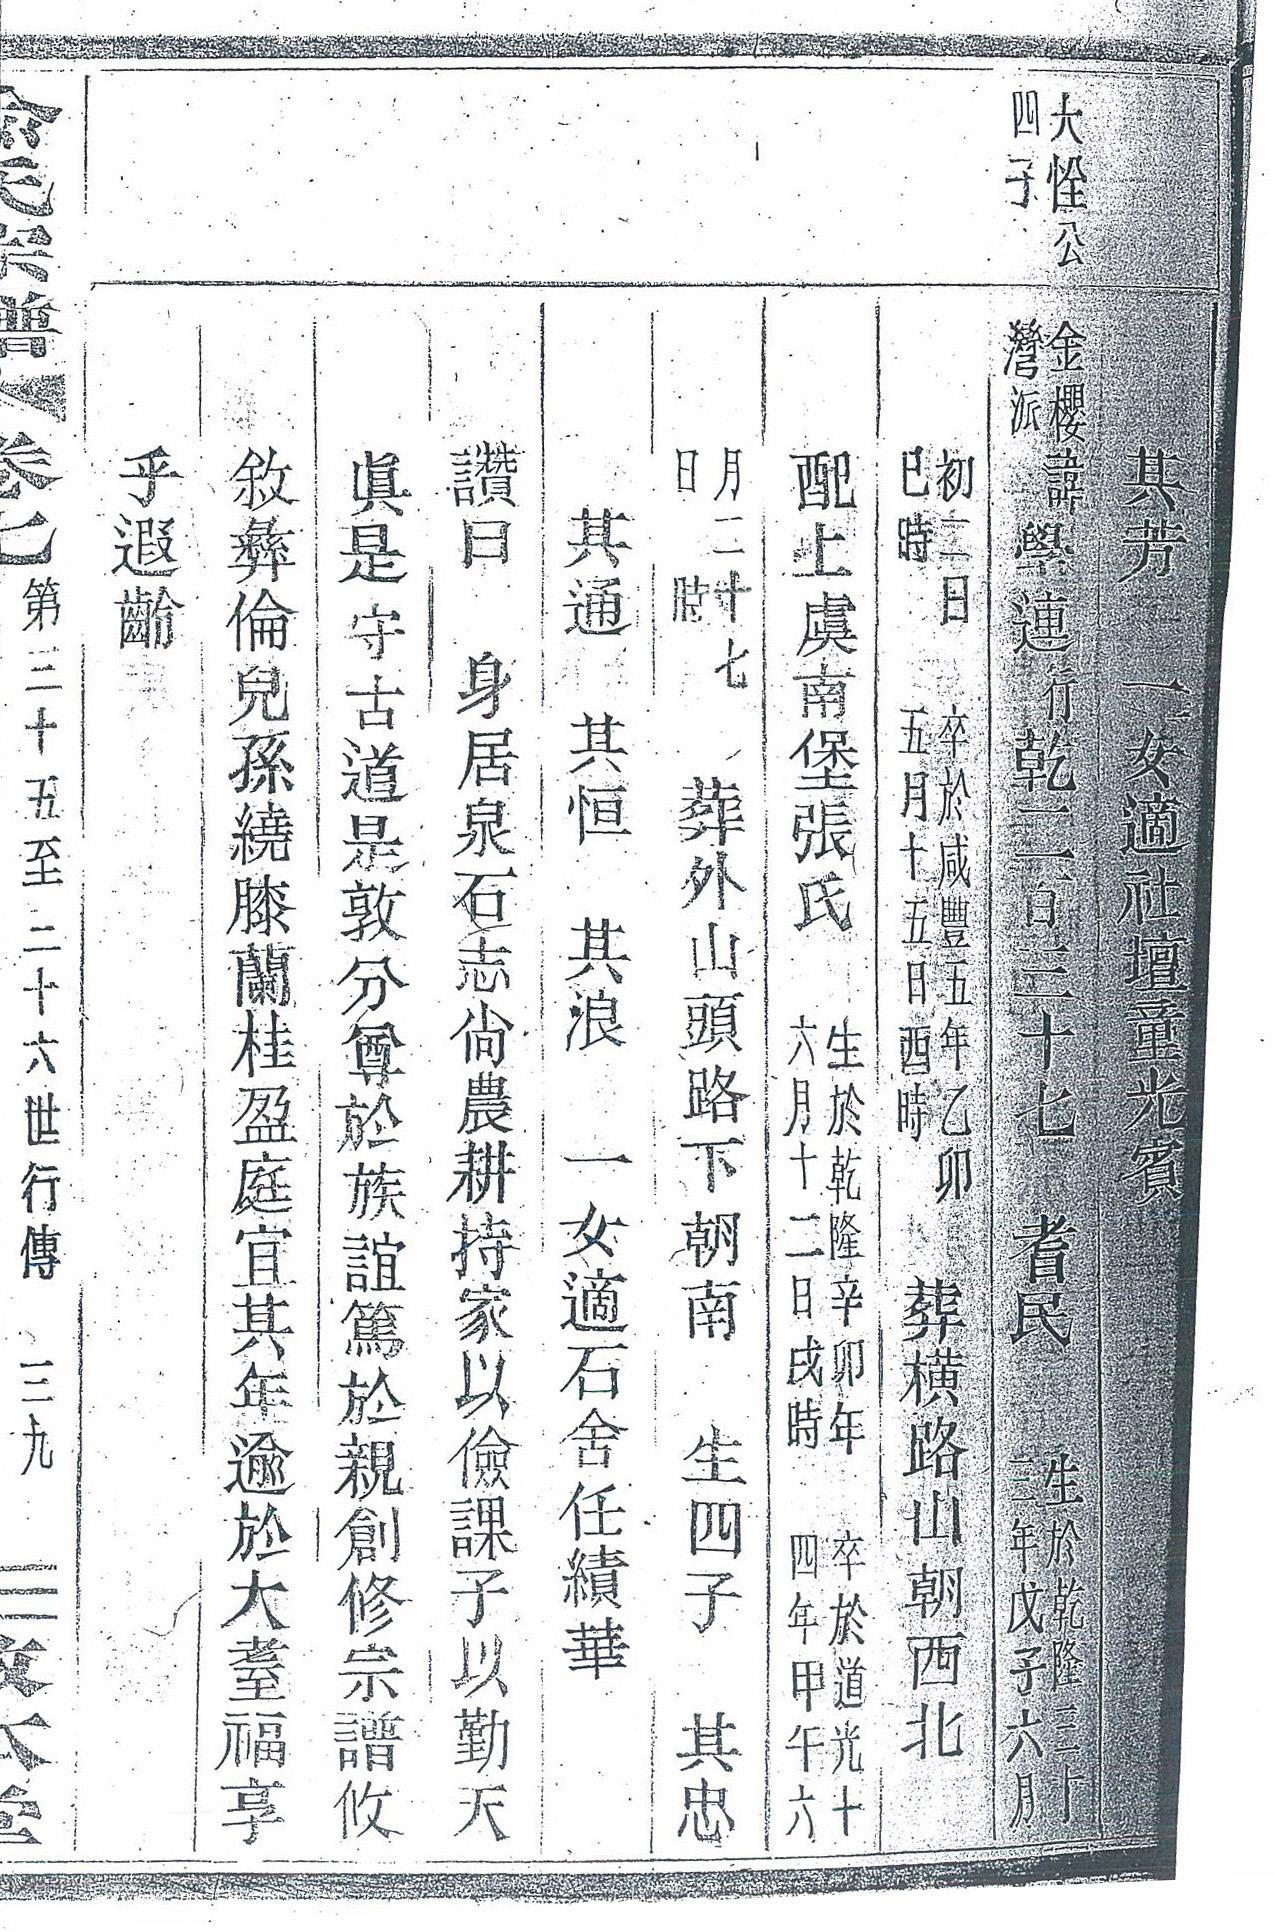 其芳　一女適社壇童光賓
大恮公
四子
金櫻
灣派
諱學連行乾二百三十七　耆民　生於乾隆三十
三年戊子六月
初二日　卒於咸豐五年乙卯
巳時　五月十五日酉時
葬橫路山朝西北
配上虞南堡張氏　生於乾隆辛卯年　卒於道光十
六月十二日戌時　四年甲午六
月二十七
日　時
葬外山頭路下朝南　生四子　其忠
其通　其恒　其浪　一女適石舍任績華
讚曰　身居泉石志尙農耕持家以儉課子以勤天
眞是守古道是敦分尊於族誼篤於親創修宗譜攸
敘彝倫兒孫繞膝蘭桂盈庭宜其年逾於大耋福享
乎遐齡
氏宗譜 卷七 第二十五至二十六世行傳 三九